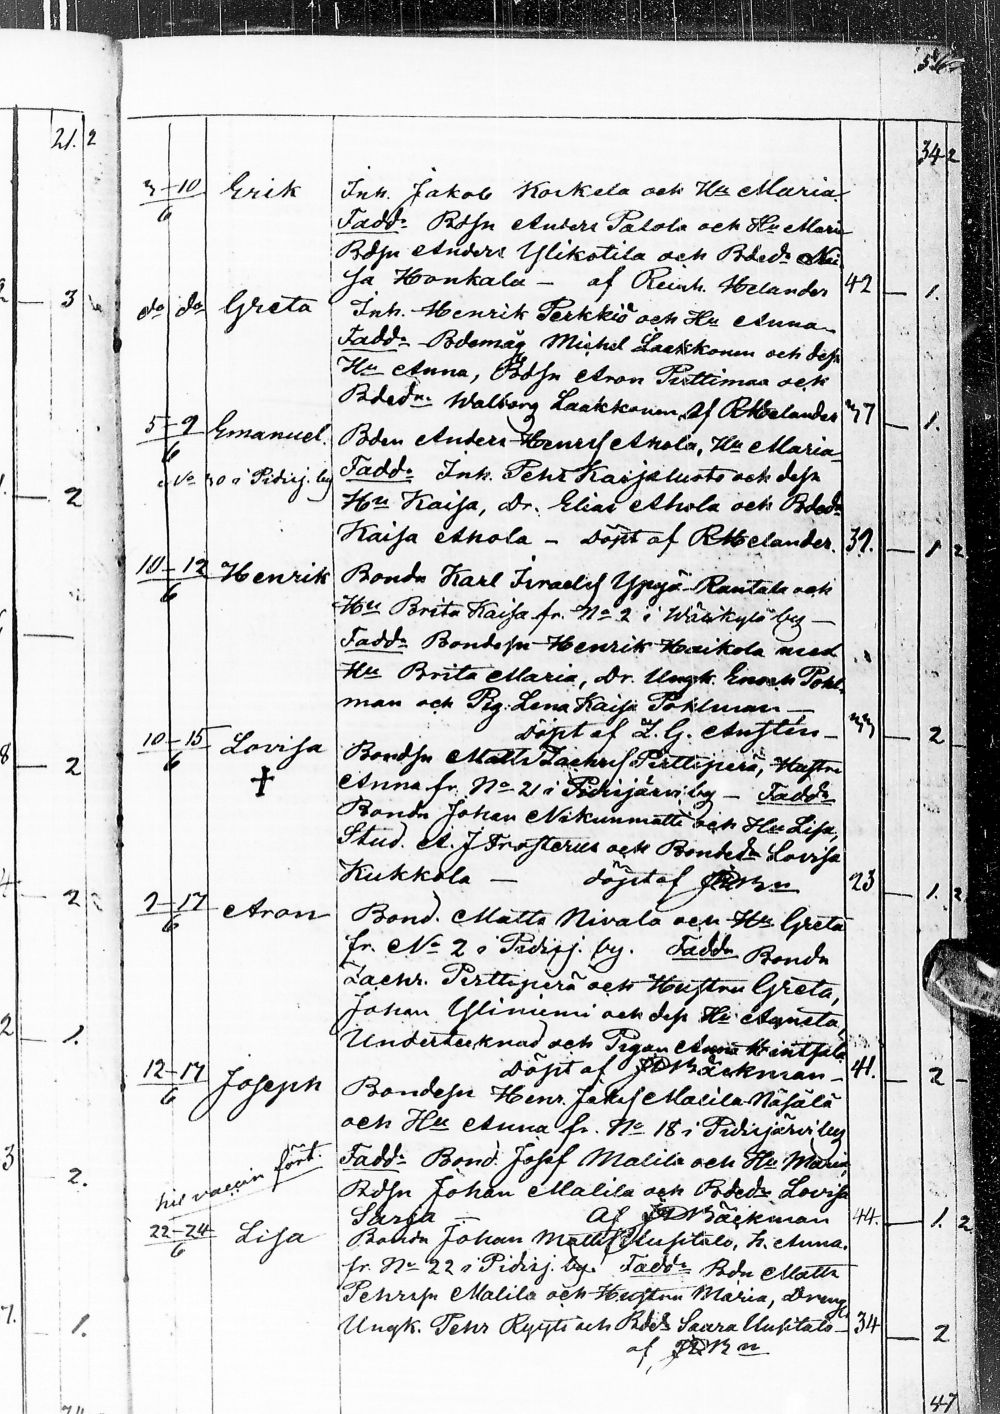 21. 2
34 2
3-10/6 Erik Inh. Jakob Koskela och Hu Maria
Fadd. Bdsn Anders Palola och Hu Maria
Bdsn Anders Ylikotila och Bded. Kai
sa Honkala — af Reinh. Helander 42 — 1.
3
do do Greta Inh. Henrik Perkkiö och Hu Anna
Fadd. Bdemåg Michel Laakkonen och dess
Hu Anna, Bdsn Aron Pirttimaa och
Bdedn. Walborg Laakkonen, af RHelander 37 — 1.
5-9/6 Emanuel. Bden Anders Henrss Ahola, Hu Maria
No 30 i Pidisj. by Fadd. Inh. Pehr Kaijsluoto och dess
2
Hu Kaisa, Dr. Elias Ahola och Bded.
Kaisa Ahola — döpt af RHelander. 39. — 1 2
10-12/6 Henrik Bondn Karl Israelss Yppyä Rantala och
Hu Brita Kaisa fr. No 2 i by —
Fadd. Bondesn Henrik Haikola med
Hu Brita Maria, Dr. Ungk. Enoch Pohl-
man och Pig. Lena Kaisa Pohlman —
döpt af Z. G. — 33 — 2
10-15/6 Lovisa Bondsn Matts Zachriss Pirttiperä, Hustru
8 2
✝ Anna fr. No 21 i Pidisjärvi by — Fadd.
Bondn Johan Niskunmatti och Hu Lisa,
Stud. A. J Frosterus och Bonded. Lovisa
Kukkola — döpt af JDBn 23 — 1. 2
4 2
7-17/6 Aron Bond. Matts Nivala och Hu Greta
fr. No 2 i Pidisj. by. Fadd. Bondn
Zachr. Pirttiperä och Hustru Greta,
Johan Yliniemi och dess Hu Agneta,
2 1.
Undertecknad och Pigan Anna
döpt af JDBäckman — 41. — 2
12-17/6 Joseph Bondesn Henr. Jakss Malila Näsälä
och Hu Anna fr. No 18 i Pidisjärvi by
3 2.
Fadd. Bond. Josef Malila och Hu Maria,
till vaccin förd. Bdsn Johan Malila och Bded. Lovisa
Sarja — af JDBäckman 44. — 1. 2
22-24/6 Lisa Bondn Johan Mattss Uusitalo, h. Anna.
fr. No 22 i Pidisj. by. Fadd. Bdn Matts
Pehrssn Malila och Hustru Maria, Dreng
7. 1.
Ungk. Pehr och Bded. Saara Uusitalo — 34 — 2
af JDBn
47